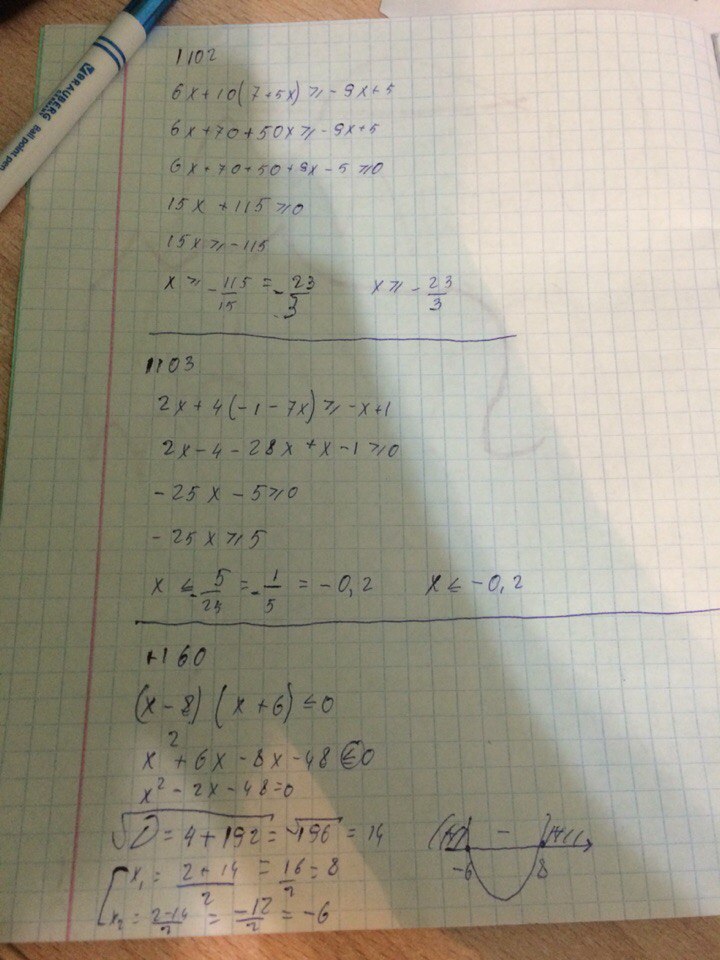 BRAUBERG
Ball point pen
1102
6x+10(7+5x)⩾-9x+5
6x+70+50x⩾-9x+5
6x+70+50+9x-5⩾0
15x+115⩾0
15x⩾-115
x⩾-115/15=-23/3 x⩾-23/3
1103
2x+4(-1-7x)⩾-x+1
2x-4-28x+x-1⩾0
-25x-5⩾0
-25x⩾5
x≤-5/25=-1/5=-0,2 x≤-0,2
1160
(x-8)(x+6)≤0
x²+6x-8x-48≤0
x²-2x-48=0
√D=4+192=√196=14
x₁=2+14/2=16/2=8
x₂=2-14/2=-12/2=-6
+ - +
-6 8